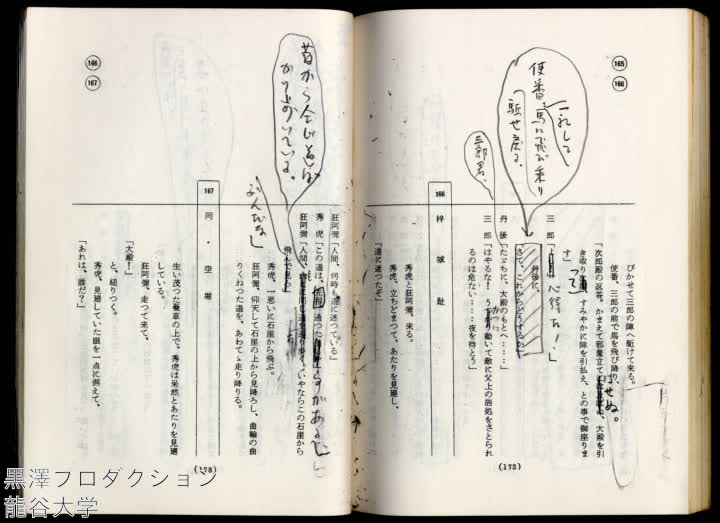 165
166
ぴかせて三郎の陣へ駆けて来る。
使番、三郎の前で馬を飛び降り、
「次郎殿の返答。かまえて邪魔立て
せぬ。
大殿を引
き取り
って
すみやかに陣を引払え、との事で御座りま
す」
三郎「
心得た!」
一礼して
使番、馬に飛び乗り
駈せ戻る。
丹後に、
さて、これからどうするか
丹後「たゞちに、大殿のもとへ……」
三郎君、
三郎「はやるな!
動いて敵に父上の居処をさとられ
るのは危ない……夜を待とう」
166
梓城趾
秀虎と狂阿彌、来る。
秀虎、立ちどまつて、あたりを見廻し、
「道に迷つたぞ」
(172)
166
167
狂阿彌「人間、何時も道に迷つている」
秀虎「この道は、
通つた
がある
昔から同じ道ばかり
歩いている。
狂阿彌「人間、
いやならこの石崖から
飛んでみろ
秀虎、一思いに石崖から飛ぶ。
狂阿彌、仰天して石崖の上から見降ろし、曲輪の曲
りくねつた道を、あわてゝ走り降りる。
167
同・空堀
生い茂つた蔓草の上で、秀虎は呆然とあたりを見廻
している。
狂阿彌、走つて来て、
「大殿!」
と、縋りつく。
秀虎、見廻していた眼を一点に据えて、
「あれは、誰だ?」
(173)
黒澤プロダクション
龍谷大学